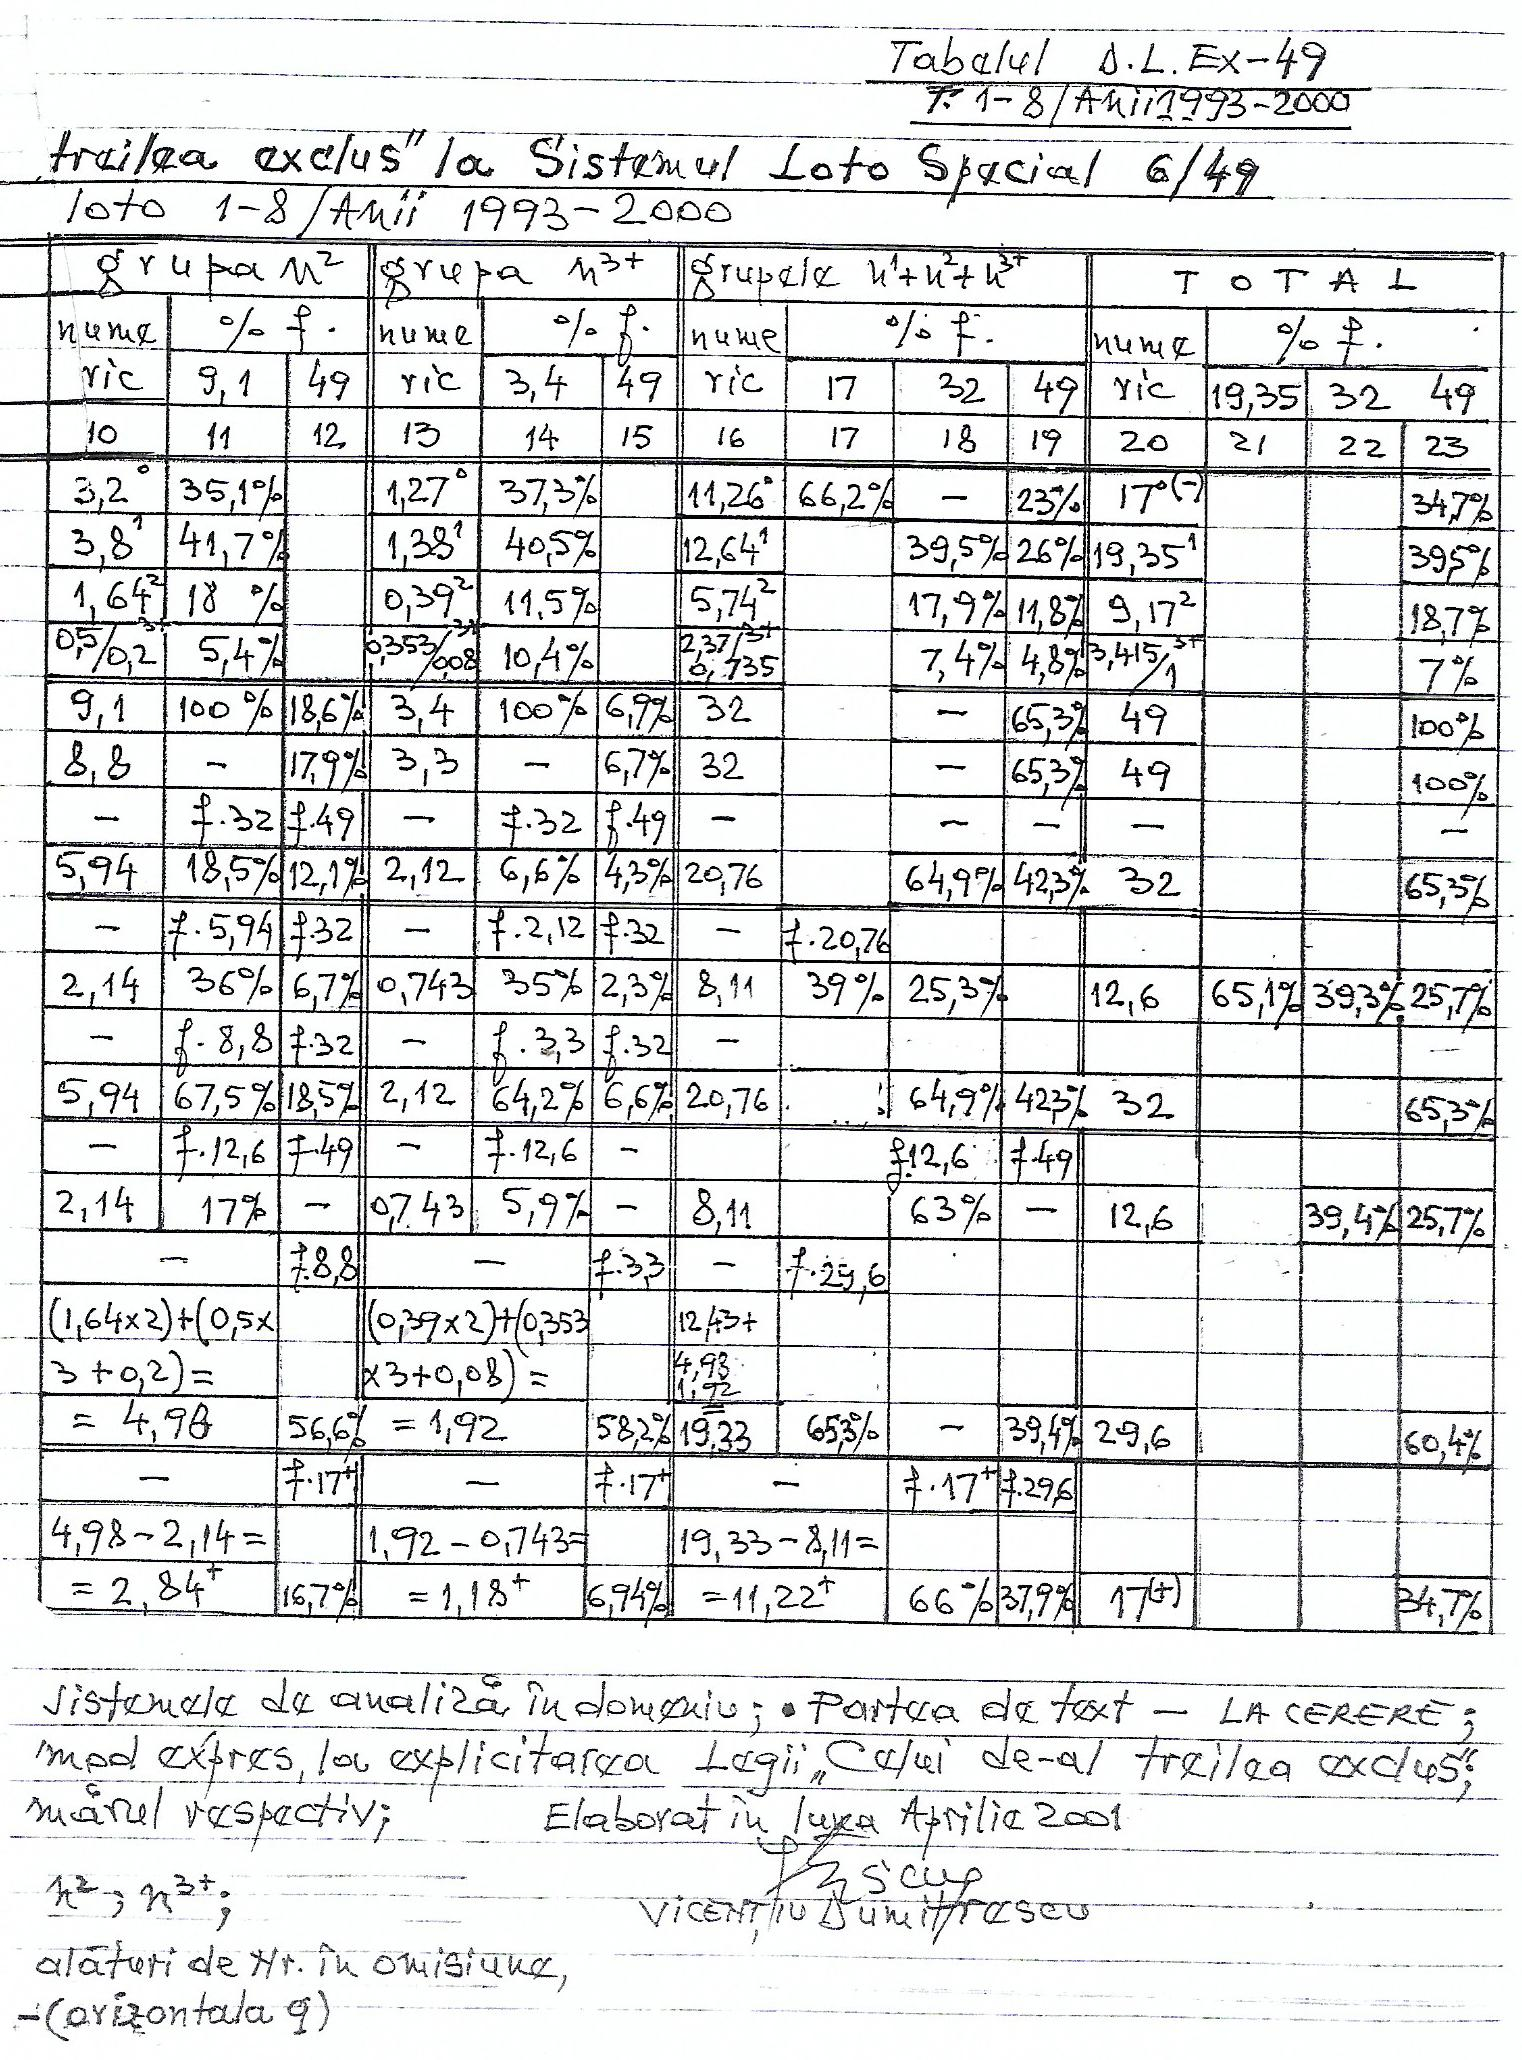 Tabelul D.L.Ex-49
T. 1-8/Anii 1993-2000
treilea exclus" la Sistemul Loto Special 6/49
loto 1-8/Anii 1993-2000
grupa n² grupa n³⁺ grupele n¹+n²+n³⁺ TOTAL
nume % f. nume % f. nume % f. nume % f.
ric 9,1 49 ric 3,4 49 ric 17 32 49 ric 19,35 32 49
10 11 12 13 14 15 16 17 18 19 20 21 22 23
3,2° 35,1% 1,27° 37,3% 11,26° 66,2% - 23% 17°(-) 34,7%
3,8¹ 41,7% 1,38¹ 40,5% 12,64¹ 39,5% 26% 19,35¹ 39,5%
1,64² 18 % 0,39² 11,5% 5,74² 17,9% 11,8% 9,17² 18,7%
0,5/0,2³⁺ 5,4% 0,353/0,08³⁺ 10,4% 2,37/0,735³⁺ 7,4% 4,8% 3,415/1³⁺ 7%
9,1 100% 18,6% 3,4 100% 6,9% 32 - 65,3% 49 100%
8,8 - 17,9% 3,3 - 6,7% 32 - 65,3% 49 100%
- f.32 f.49 - f.32 f.49 - - - - -
5,94 18,5% 12,1% 2,12 6,6% 4,3% 20,76 64,9% 42,3% 32 65,3%
- f.5,94 f.32 - f.2,12 f.32 - f.20,76
2,14 36% 6,7% 0,743 35% 2,3% 8,11 39% 25,3% 12,6 65,1% 39,3% 25,7%
- f.8,8 f.32 - f.3,3 f.32 -
5,94 67,5% 18,5% 2,12 64,2% 6,6% 20,76 64,9% 42,3% 32 65,3%
- f.12,6 f.49 - f.12,6 - f.12,6 f.49
2,14 17% - 0,743 5,9% - 8,11 63% - 12,6 39,4% 25,7%
- f.8,8 - f.3,3 - f.29,6
(1,64x2)+(0,5x (0,39x2)+(0,353 12,43+
3+0,2)= x3+0,08)= 4,98
1,92
= 4,98 56,6% = 1,92 58,2% 19,33 65,3% - 39,4% 29,6 60,4%
- f.17⁺ - f.17⁺ - f.17⁺ f.29,6
4,98-2,14= 1,92-0,743= 19,33-8,11=
= 2,84⁺ 16,7% = 1,18⁺ 6,94% =11,22⁺ 66% 37,9% 17(+) 34,7%
Sistemele de analiză în domeniu; • Partea de text - LA CERERE;
mod expres, la explicitarea Legii „Celui de-al treilea exclus";
mărul respectiv; Elaborat în luna Aprilie 2001
n²; n³⁺;
VICENȚIU Dumitrescu
alături de Nr. în omisiune,
-(orizontala 9)